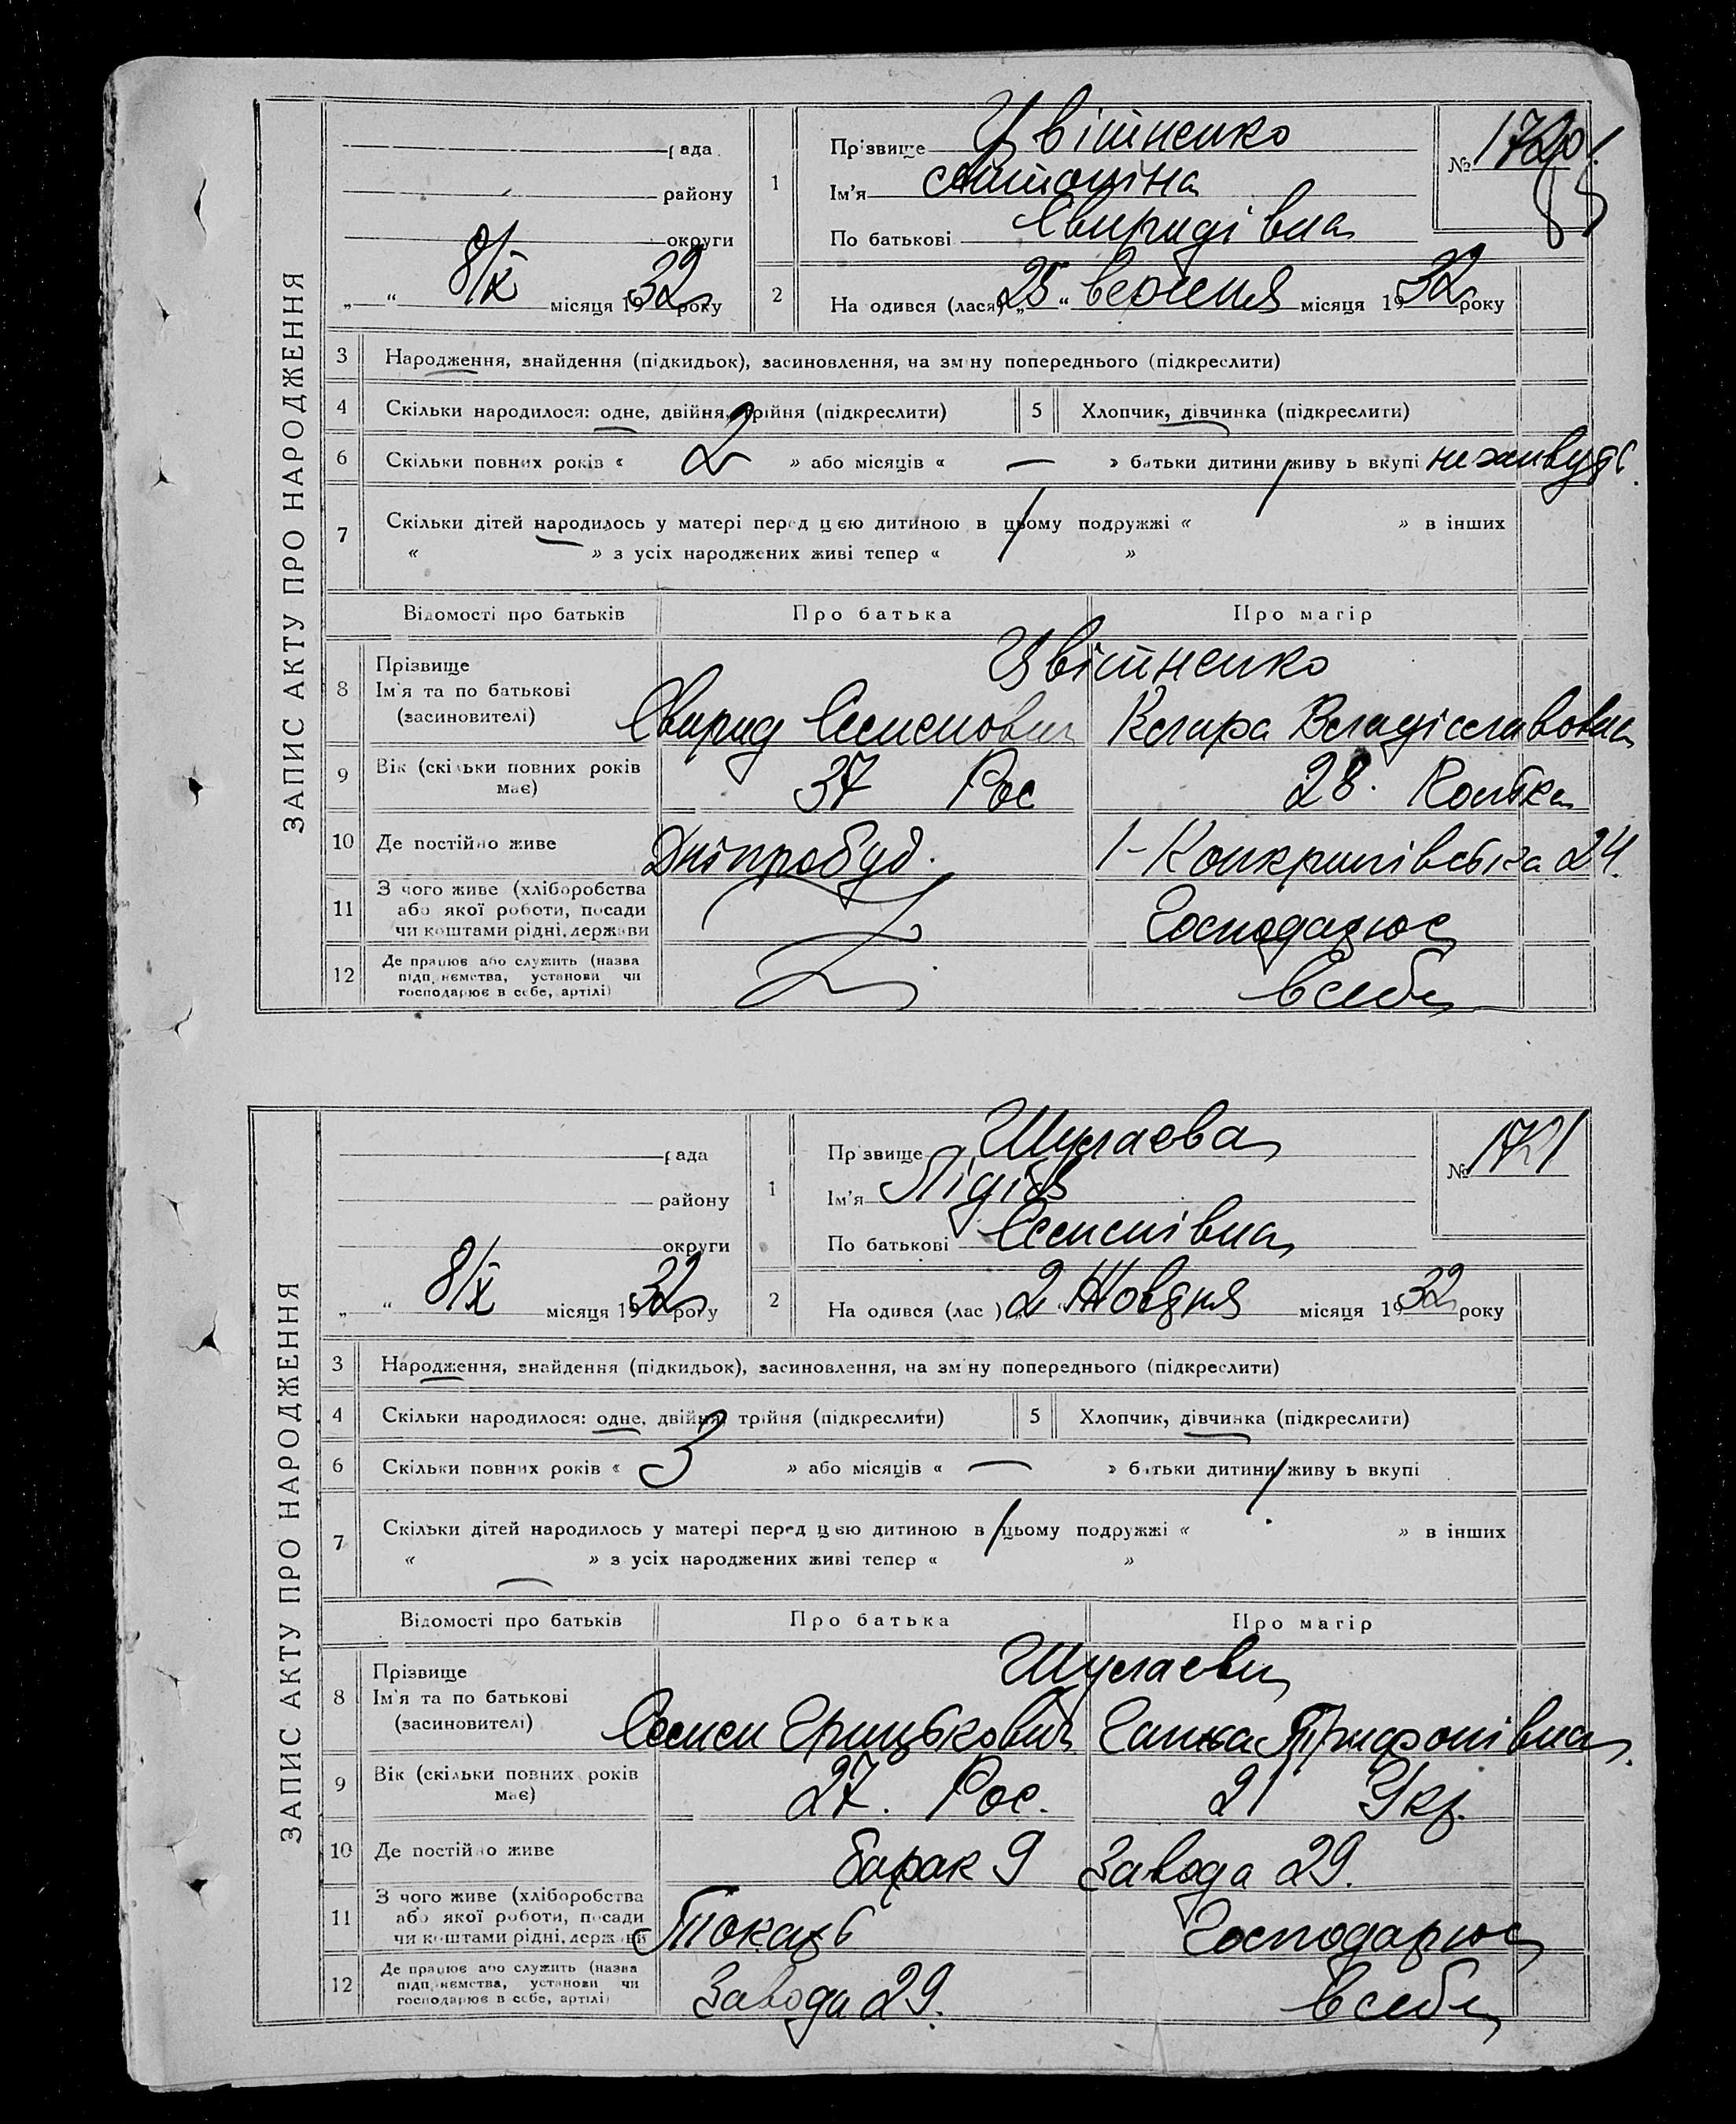 ЗАПИС АКТУ ПРО НАРОДЖЕННЯ
рада
району
округи
„ “ 8/X місяця 1932 року
1
Прізвище Цвітненко
Ім'я Антоніна
По батькові Свиридівна
№
2
На одився (лася) „25“ вересня місяця 1932 року
3 Народження, знайдення (підкидьок), засиновлення, на зміну попереднього (підкреслити)
4 Скільки народилося: одне, двійня, трійня (підкреслити) 5 Хлопчик, дівчинка (підкреслити)
6 Скільки повних років « 2 » або місяців « — » батьки дитини живу ь вкупі не живуть.
7 Скільки дітей народилось у матері перед цією дитиною в цьому подружжі « » в інших
« » з усіх народжених живі тепер « »
Відомості про батьків Про батька Про матір
8 Прізвище Ім'я та по батькові (засиновителі)
Цвітненко
Свирид Семенович Клара Владіславовна
9 Вік (скільки повних років має) 37 Рос 28. Полька
10 Де постійно живе Дніпробуд. 24.
11 З чого живе (хліборобства або якої роботи, посади чи коштами рідні, держави Господарює
12 Де працює або служить (назва підп. ємства, установи чи господарює в себе, артілі) в себе
ЗАПИС АКТУ ПРО НАРОДЖЕННЯ
рада
району
округи
„ “ 8/X місяця 1932 року
1
Пр звище Шулаева
Ім'я Лідія
По батькові Семенівна
№ 1721
2
На одився (лас ) 2 Жовтня місяця 1932 року
3 Народження, знайдення (підкидьок), засиновлення, на зміну попереднього (підкреслити)
4 Скільки народилося: одне, двійня, трійня (підкреслити) 5 Хлопчик, дівчинка (підкреслити)
6 Скільки повних років « 3 » або місяців « — » батьки дитини живу ь вкупі
7 Скільки дітей народилось у матері перед цією дитиною в цьому подружжі « » в інших
« » з усіх народжених живі тепер « »
Відомості про батьків Про батька Про матір
8 Прізвище Ім'я та по батькові (засиновителі)
Шулаеви
Семен Грицькович Ганна Трифонівна
9 Вік (скільки повних років має) 27. Рос. 21 Укр.
10 Де постійно живе барак 9 Завода 29.
11 З чого живе (хліборобства або якої роботи, посади чи коштами рідні, держави Токарь Господарює
12 Де працює або служить (назва підп. ємства, установи чи господарює в себе, артілі) Завода 29. в себе